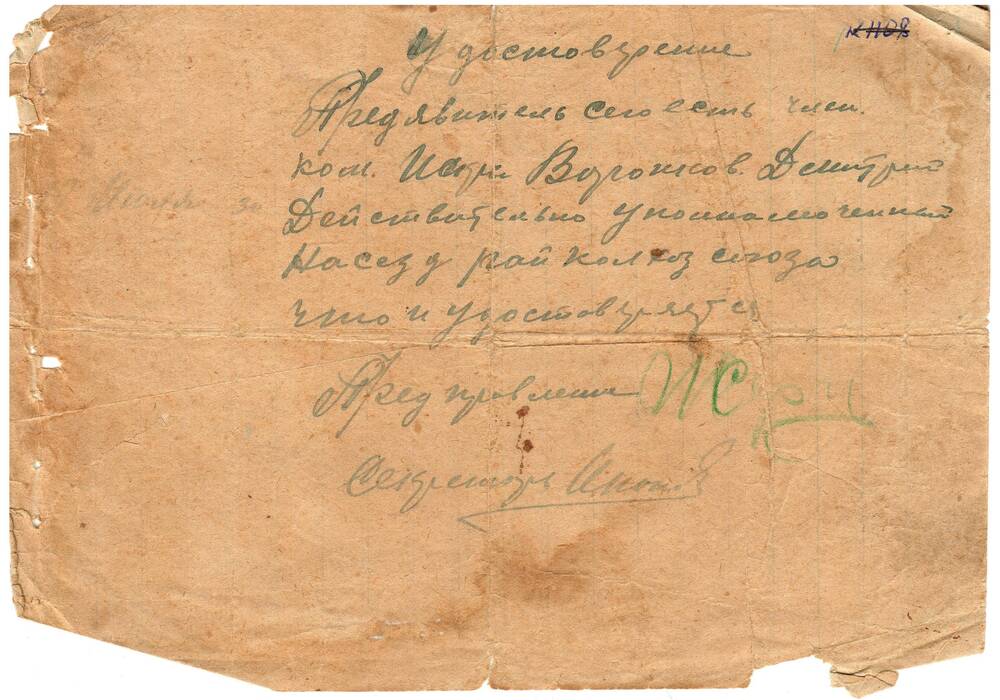 № 1108
Удостоверение
Предявитель сего есть член
ком. Искра Воронков Дмитрий
Действительно упоиномоченный
На сезд рай колхоз союза
что и удостоверяется
Июня 30
Пред правления
Секретарь